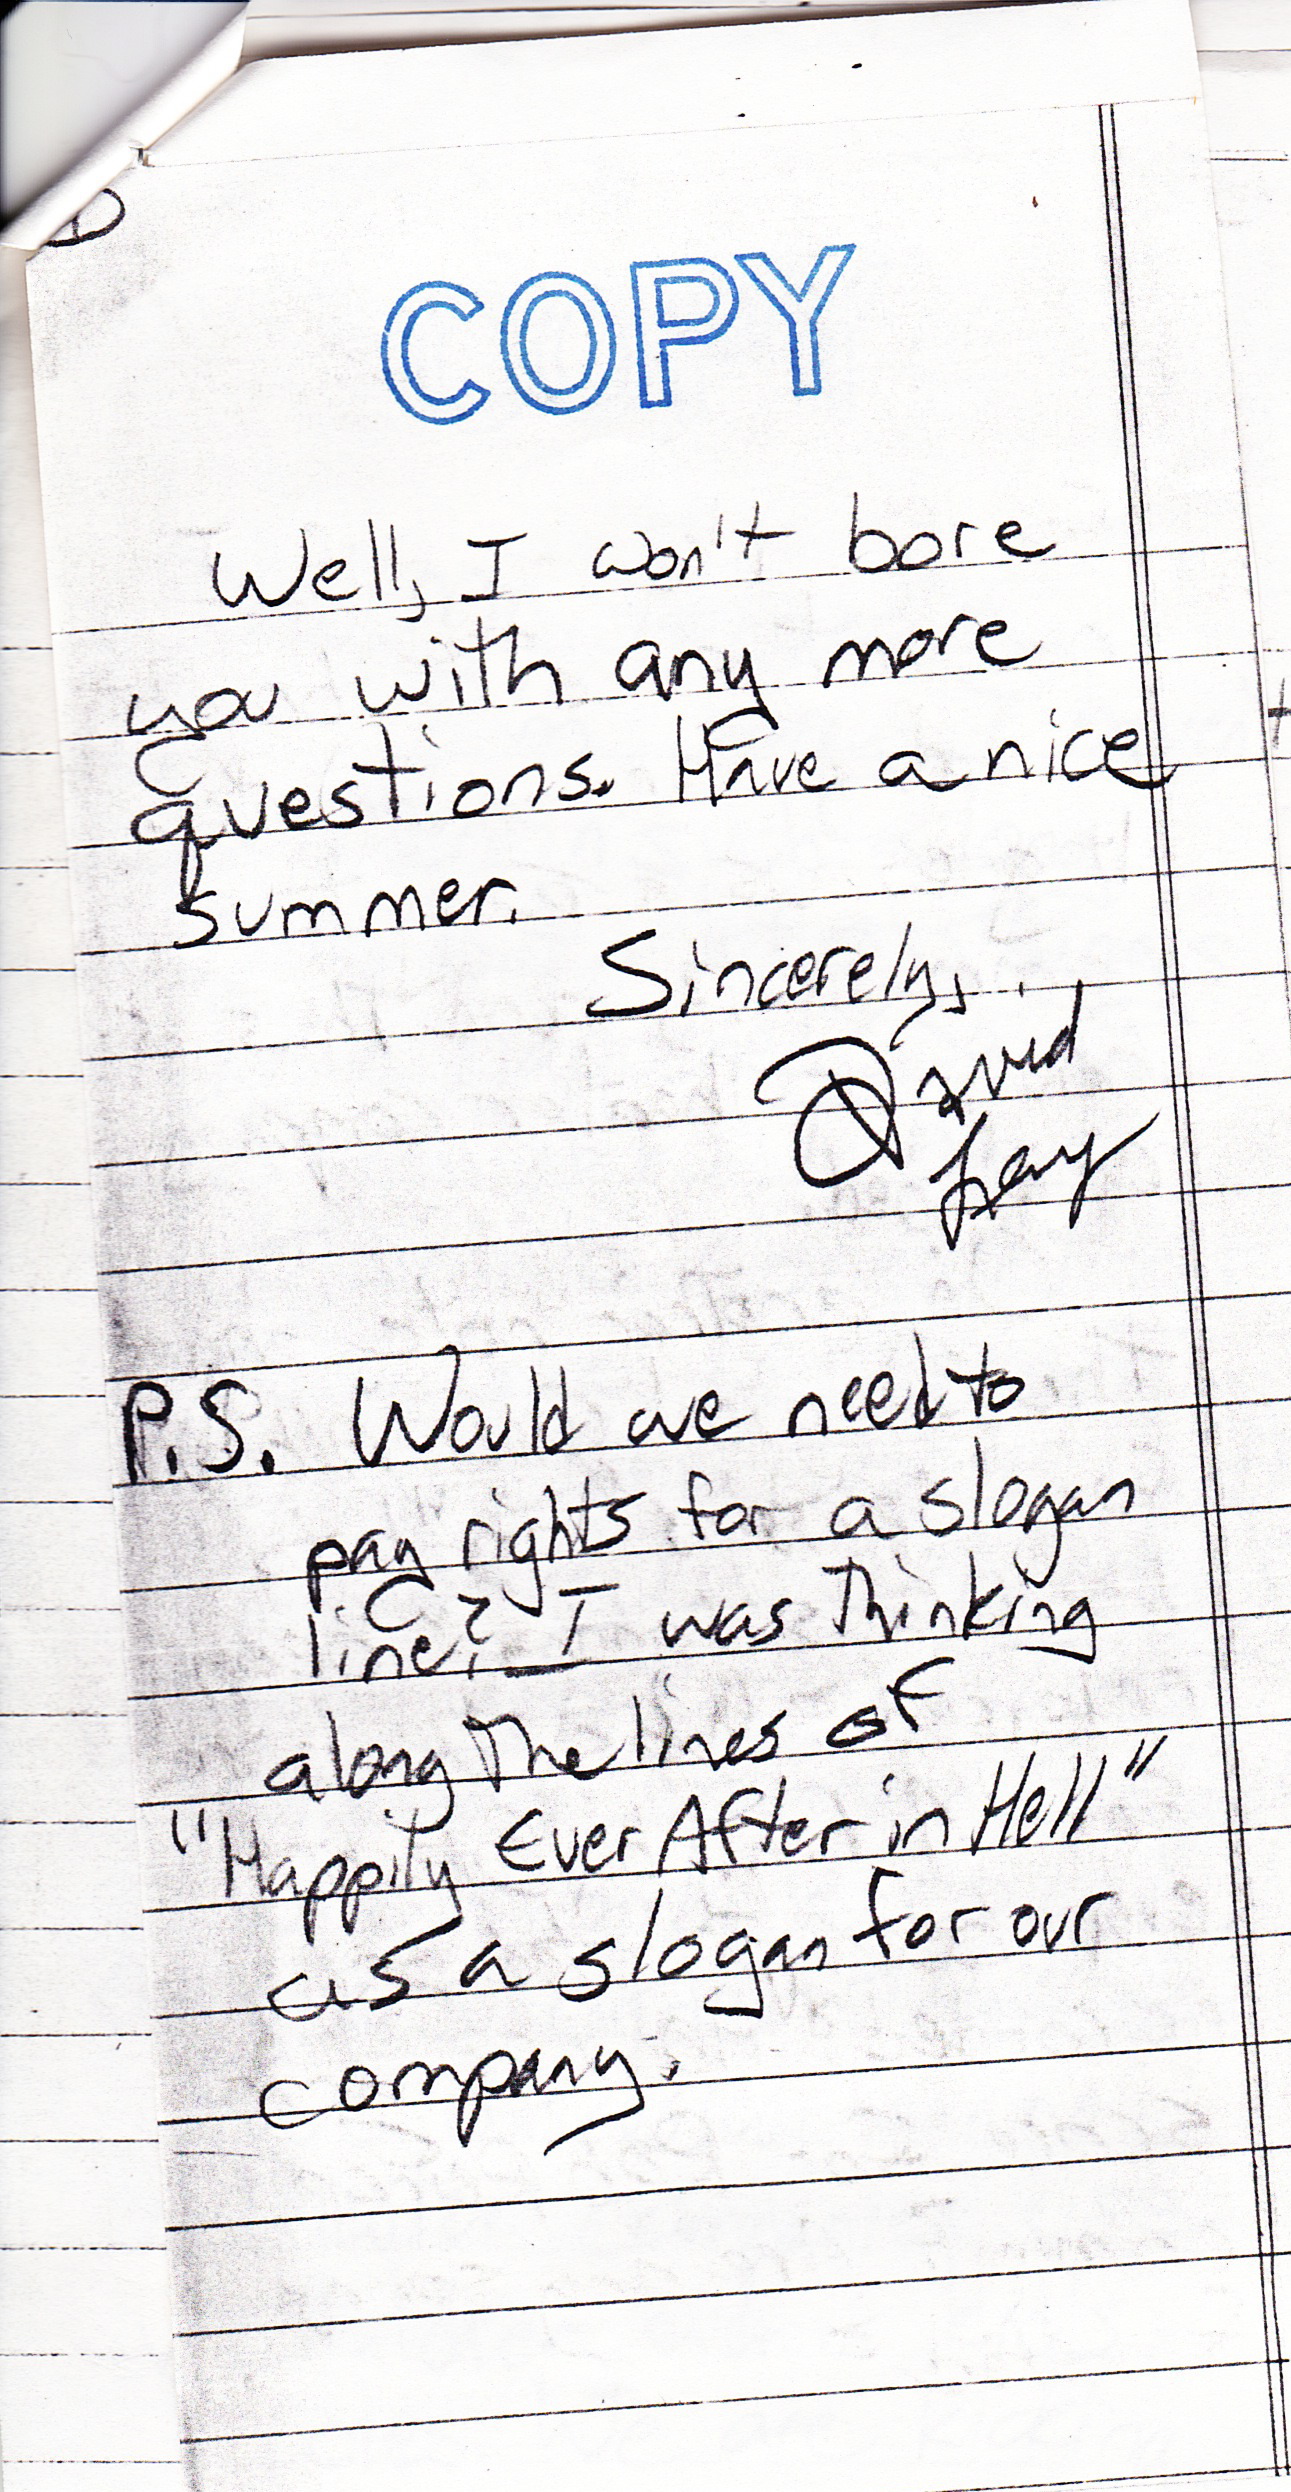 COPY
Well, I won't bore
you with any more
questions. Have a nice
summer.
Sincerely,
David
P.S. Would we need to
pay rights for a slogan
line? I was thinking
along the lines of
"Happily Ever After in Hell"
as a slogan for our
company.